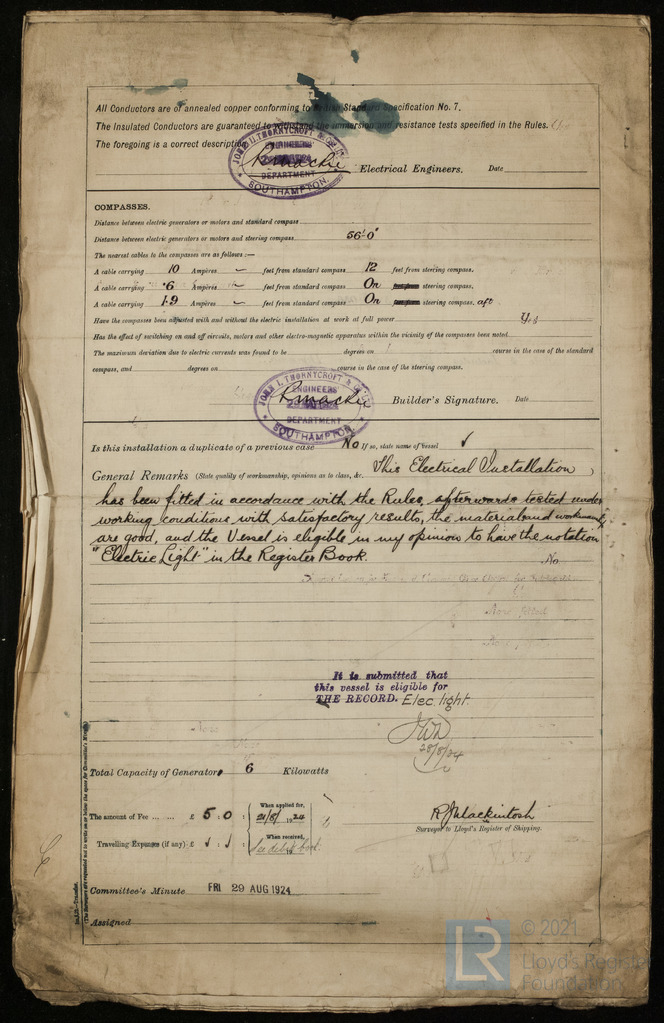 All Conductors are of annealed copper conforming to British Standard Specification No. 7.
The Insulated Conductors are guaranteed to withstand the immersion and resistance tests specified in the Rules.
The foregoing is a correct description
JOHN I. THORNYCROFT & CO. LTD.
ENGINEERS
DEPARTMENT
SOUTHAMPTON.
Electrical Engineers. Date
COMPASSES.
Distance between electric generators or motors and standard compass
Distance between electric generators or motors and steering compass 56'-0"
The nearest cables to the compasses are as follows:—
A cable carrying 10 Ampères — feet from standard compass 12 feet from steering compass.
A cable carrying .6 Ampères — feet from standard compass On feet from steering compass.
A cable carrying 1.9 Ampères — feet from standard compass On feet from steering compass. aft
Have the compasses been adjusted with and without the electric installation at work at full power Yes
Has the effect of switching on and off circuits, motors and other electro-magnetic apparatus within the vicinity of the compasses been noted
The maximum deviation due to electric currents was found to be degrees on course in the case of the standard
compass, and degrees on course in the case of the steering compass.
JOHN I. THORNYCROFT & CO. LTD.
ENGINEERS
DEPARTMENT
SOUTHAMPTON.
Builder's Signature. Date
Is this installation a duplicate of a previous case No If so, state name of vessel ✓
General Remarks (State quality of workmanship, opinions as to class, &c. This Electrical Installation
has been fitted in accordance with the Rules, afterwards tested under
working conditions with satisfactory results, the material and workmanship
are good, and the Vessel is eligible in my opinion to have the notation
"Electric Light" in the Register Book.
It is submitted that
this vessel is eligible for
THE RECORD. Elec. light.
28/8/24
Total Capacity of Generators 6 Kilowatts
The amount of Fee ... ... £ 5 : 0 : When applied for, 21/8/1924
Travelling Expenses (if any) £ : : When received,
R J Mackintosh
Surveyor to Lloyd's Register of Shipping.
Committee's Minute FRI 29 AUG 1924
Assigned
LR
© 2021
Lloyd's Register
Foundation